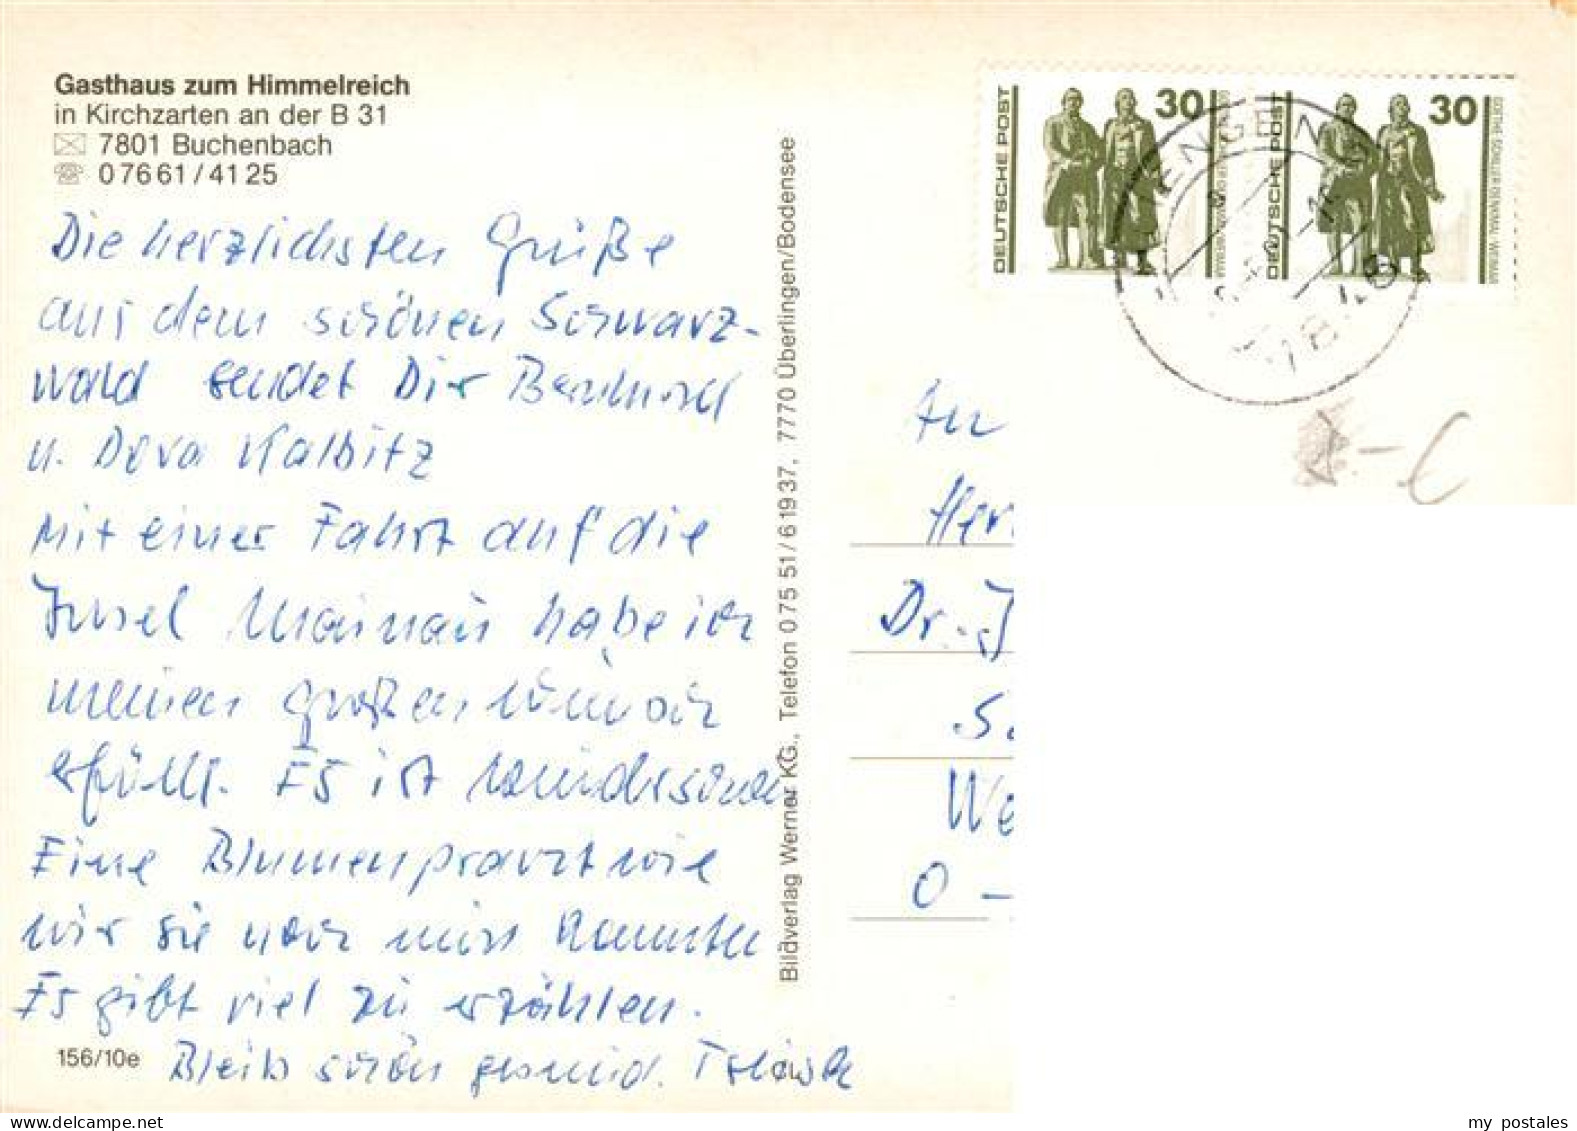 Gasthaus zum Himmelreich
in Kirchzarten an der B 31
7801 Buchenbach
0 76 61 / 41 25
Die herzlichsten Grüße
aus dem schönen Schwarz-
wald sendet Dir Bernhard
u. Dora Kalbitz
Mit einer Fahrt auf die
Insel Mainau habe ich
meinen großen Wunsch
erfüllt. Es ist wunderschön
Eine Blumenpracht wie
wir sie noch nicht kannten
Es gibt viel zu erzählen.
Bleib schön gesund.
156/10e
Bildverlag Werner KG., Telefon 0 75 51 / 6 19 37, 7770 Überlingen/Bodensee
DEUTSCHE POST
30
GOETHE-SCHILLER-DENKMAL · WEIMAR
DEUTSCHE POST
30
GOETHE-SCHILLER-DENKMAL · WEIMAR
An
Herr
Dr.-I
We
O -
my postales